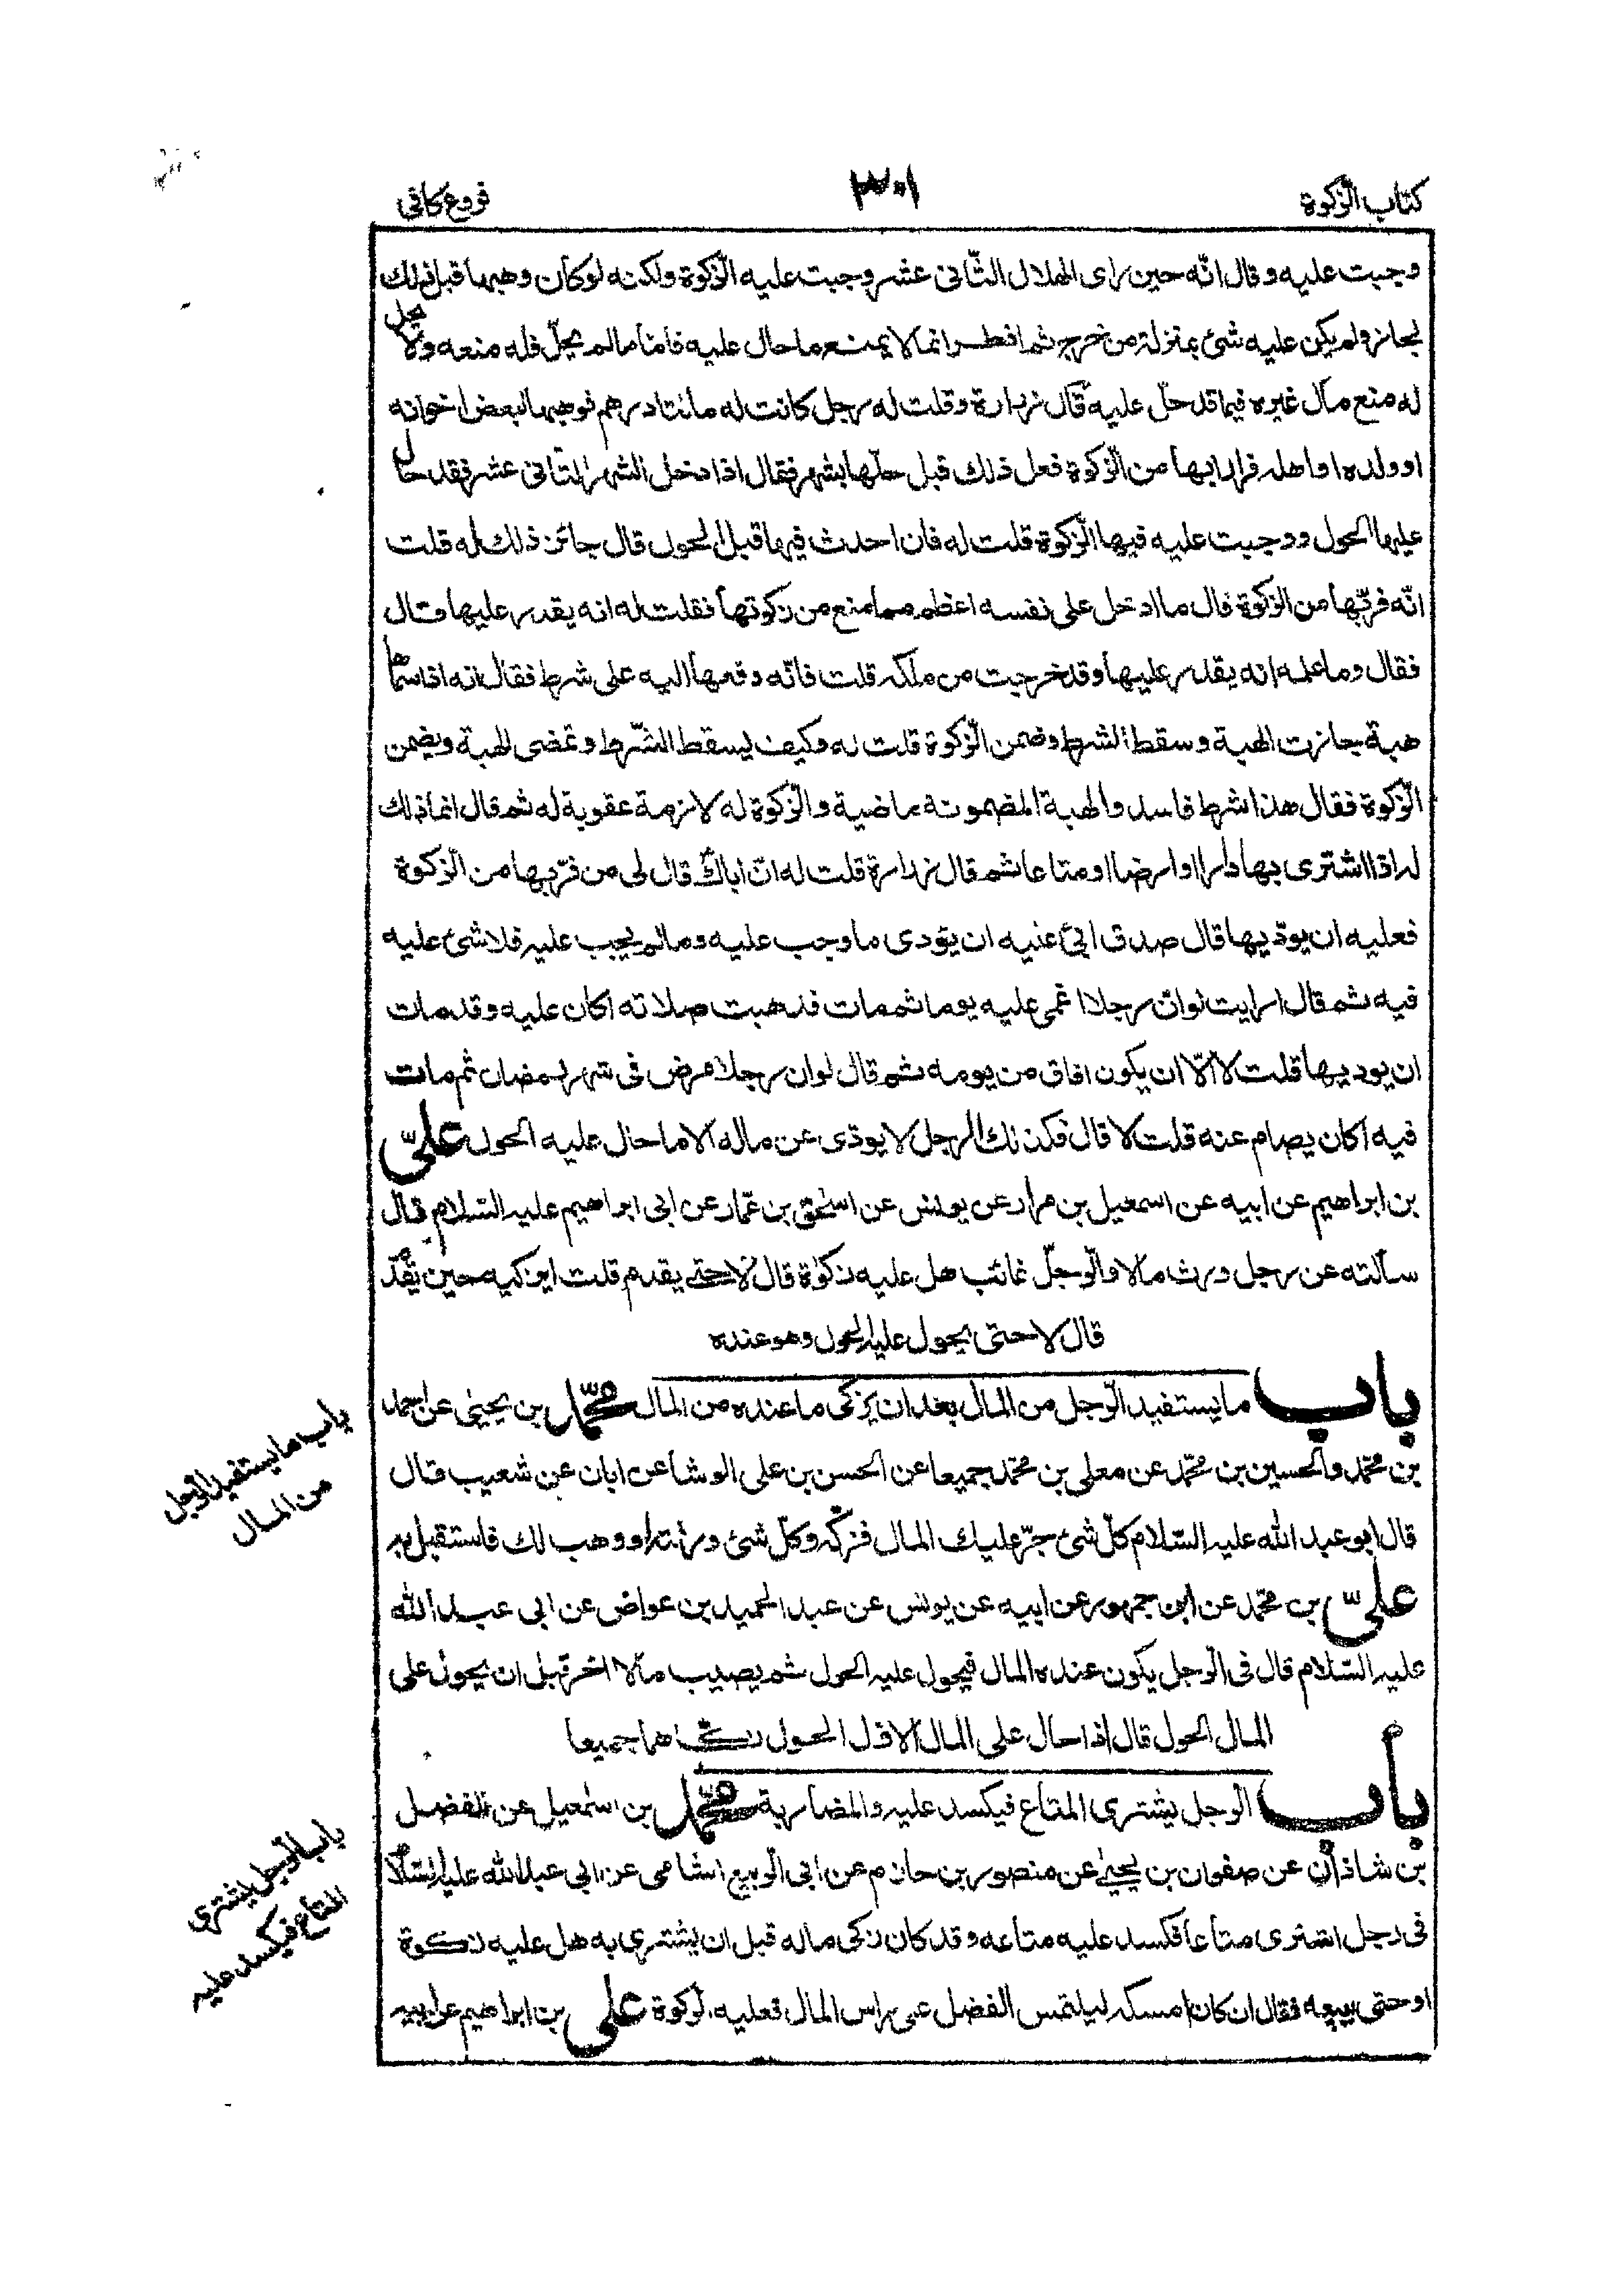 كتاب الزكوة
٣٠١
فروع كافى
وجبت عليه وقال انّه حين راى الهلال الثّانى عشر وجبت عليه الزّكوة ولكنه لو كان وهبها قبل ذلك
لجاز ولم يكن عليه شئ بمنزلة من خرج ثم افطر انما لا يمنع ما حال عليه فامّا ما لم يحلّ فله منعه ولا يحل
له منع مال غيره فيما قد حلّ عليه قال زرارة وقلت له رجل كانت له مائتا درهم فوهبها لبعض اخوانه
او ولده او اهله فرارا بها من الزّكوة فعل ذلك قبل حلّها بشهر فقال اذا دخل الشهر الثّانى عشر فقد حال
عليها الحول ووجبت عليه فيها الزّكوة قلت له فان احدث فيها قبل الحول قال جائز ذلك له قلت
انّه فرّ بها من الزكوة قال ما ادخل على نفسه اعظم مما منع من زكوتها فقلت له انه يقدر عليها قال
فقال وما علمه انه يقدر عليها وقد خرجت من ملكه قلت فانّه دفعها اليه على شرط فقال انه اذا سمّاها
هبة جازت الهبة وسقط الشرط وضمن الزّكوة قلت له وكيف يسقط الشّرط وتمضى الهبة ويضمن
الزّكوة فقال هذا شرط فاسد والهبة المضمونة ماضية والزّكوة له لازمة عقوبة له ثم قال انما ذلك
له اذا اشترى بها دارا او ارضا او متاعا ثم قال زرارة قلت له انّ اباك قال لى من فرّ بها من الزّكوة
فعليه ان يودّيها قال صدق ابى عليه ان يؤدى ما وجب عليه وما لم يجب عليه فلا شئ عليه
فيه ثم قال ارايت لو انّ رجلا اغمى عليه يوما ثم مات فذهبت صلاته اكان عليه وقد مات
ان يوديها قلت لا الّا ان يكون افاق من يومه ثم قال لو ان رجلا مرض فى شهر رمضان ثم مات
فيه اكان يصام عنه قلت لا قال فكذلك الرجل لا يودّى عن ماله الا ما حال عليه الحول علىّ
بن ابراهيم عن ابيه عن اسمعيل بن مرار عن يونس عن اسحق بن عمّار عن ابى ابراهيم عليه السّلام قال
سألته عن رجل ورث مالا والرّجل غائب هل عليه زكوة قال لا حتى يقدم قلت ايزكيه حين يقدم
قال لا حتى يحول عليه الحول وهو عنده
باب ما يستفيد الرّجل من المال بعد ان يزكّى ما عنده من المال محمّد بن يحيى عن احمد
بن محمّد والحسين بن محمّد عن معلى بن محمّد جميعا عن الحسن بن على الوشا عن ابان عن شعيب قال
قال ابو عبد الله عليه السّلام كلّ شئ جرّ عليك المال فزكّه وكلّ شئ ورثته او وهب لك فاستقبل به
علىّ بن محمّد عن ابن جمهور عن ابيه عن يونس عن عبد الحميد بن عواض عن ابى عبد الله
عليه السّلام قال فى الرّجل يكون عنده المال فيحول عليه الحول ثم يصيب مالا اخر قبل ان يحول على
المال الحول قال اذا حال على المال الاوّل الحول زكّاهما جميعا
باب الرّجل يشترى المتاع فيكسد عليه والمضاربة محمّد بن اسمعيل عن الفضل
بن شاذان عن صفوان بن يحيى عن منصور بن حازم عن ابى الرّبيع الشامى عن ابى عبد الله عليه السّلام
فى رجل اشترى متاعا فكسد عليه متاعه وقد كان زكى ماله قبل ان يشترى به هل عليه زكوة
او حتى يبيعه فقال ان كان امسكه ليلتمس الفضل على راس المال فعليه الزكوة على بن ابراهيم عن ابيه
باب ما يستفيد الرّجل
من المال
باب الرّجل يشترى
المتاع فيكسد عليه